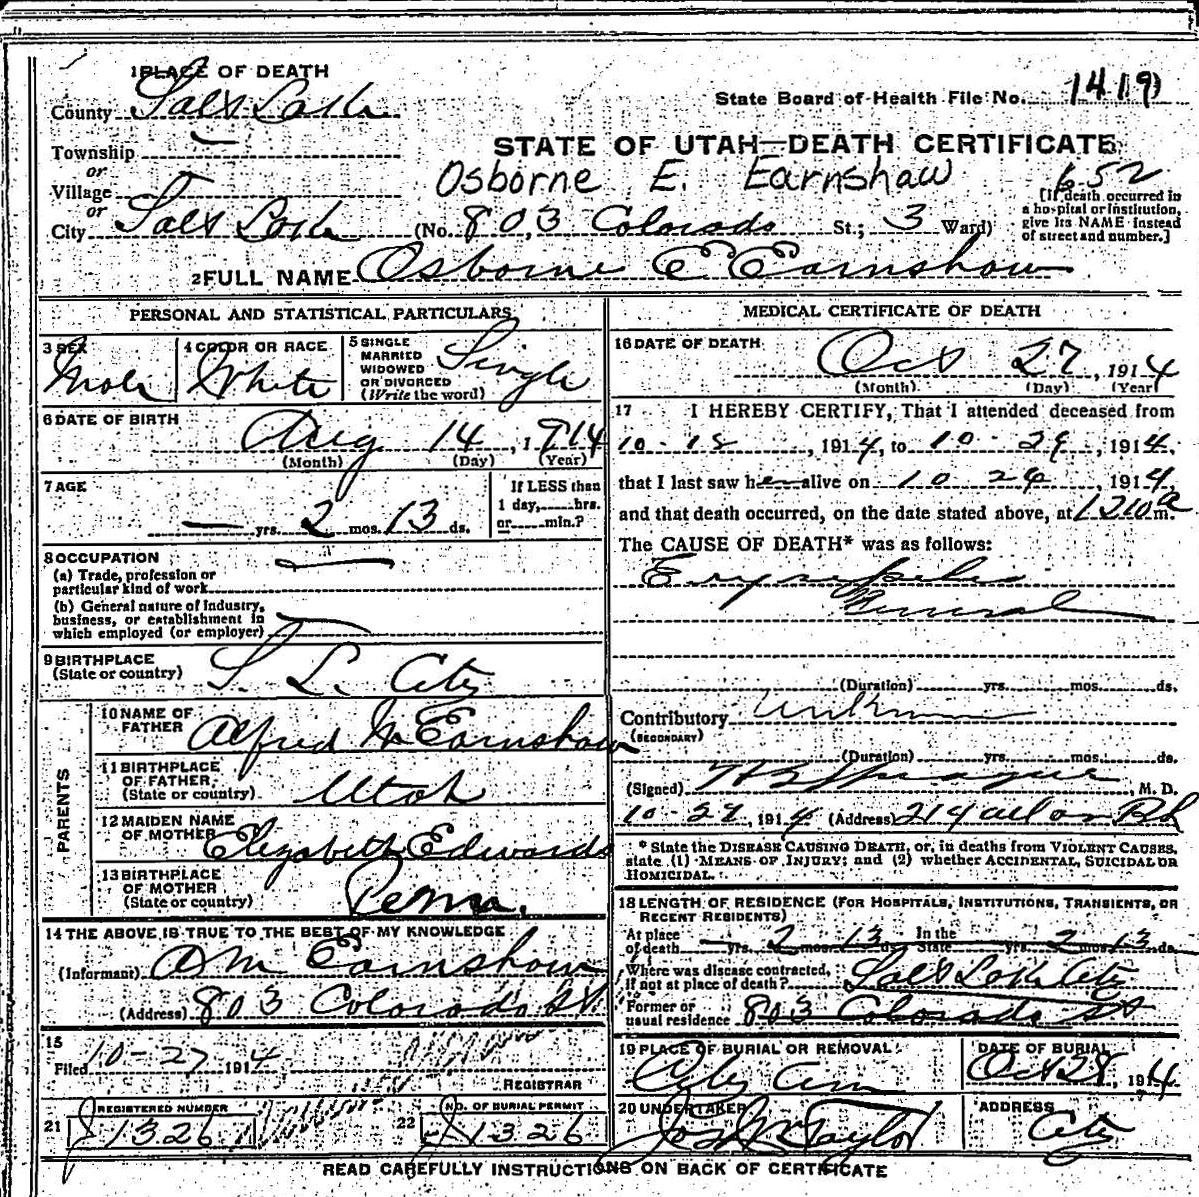 1 PLACE OF DEATH
County Salt Lake
State Board of Health File No. 1419
Township
or
Village
or
City Salt Lake
STATE OF UTAH—DEATH CERTIFICATE
Osborne E. Earnshaw 652
(No. 803 Colorado St.; 3 Ward)
[If death occurred in a hospital or institution, give its NAME instead of street and number.]
2 FULL NAME Osborne E Earnshaw
PERSONAL AND STATISTICAL PARTICULARS
3 SEX Male
4 COLOR OR RACE White
5 SINGLE MARRIED WIDOWED OR DIVORCED (Write the word) Single
6 DATE OF BIRTH Aug 14, 1914
(Month) (Day) (Year)
7 AGE — yrs. 2 mos. 13 ds.
If LESS than 1 day,......hrs. or......min.?
8 OCCUPATION
(a) Trade, profession or
particular kind of work
(b) General nature of industry,
business, or establishment in
which employed (or employer)
9 BIRTHPLACE
(State or country) S. L. City
PARENTS
10 NAME OF FATHER Alfred M Earnshaw
11 BIRTHPLACE
OF FATHER
(State or country) Utah
12 MAIDEN NAME
OF MOTHER Elizabeth Edwards
13 BIRTHPLACE
OF MOTHER
(State or country) Penna.
14 THE ABOVE IS TRUE TO THE BEST OF MY KNOWLEDGE
(Informant) A M Earnshaw
(Address) 803 Colorado St.
15
Filed 10-27 1914
REGISTRAR
21 REGISTERED NUMBER J 1326
22 NO. OF BURIAL PERMIT J 1326
MEDICAL CERTIFICATE OF DEATH
16 DATE OF DEATH Oct 27, 1914
(Month) (Day) (Year)
17 I HEREBY CERTIFY, That I attended deceased from
10-18, 1914, to 10-29, 1914,
that I last saw h alive on 10 24, 1914,
and that death occurred, on the date stated above, at 1210 a m.
The CAUSE OF DEATH* was as follows:
Erysipelas
General
(Duration) yrs. mos. ds.
Contributory Unknown
(SECONDARY)
(Duration) yrs. mos. ds.
(Signed) H B Sprague, M. D.
10-27, 1914 (Address) 214
* State the DISEASE CAUSING DEATH, or, in deaths from VIOLENT CAUSES,
state (1) MEANS OF INJURY; and (2) whether ACCIDENTAL, SUICIDAL OR
HOMICIDAL.
18 LENGTH OF RESIDENCE (FOR HOSPITALS, INSTITUTIONS, TRANSIENTS, OR
RECENT RESIDENTS)
At place of death — yrs. 2 mos. 13 ds. In the State yrs. 2 mos. 13 ds.
Where was disease contracted,
if not at place of death? Salt Lake City
Former or
usual residence 803 Colorado St
19 PLACE OF BURIAL OR REMOVAL City Cem
DATE OF BURIAL Oct 28, 1914
20 UNDERTAKER Jos Wm Taylor
ADDRESS City
READ CAREFULLY INSTRUCTIONS ON BACK OF CERTIFICATE